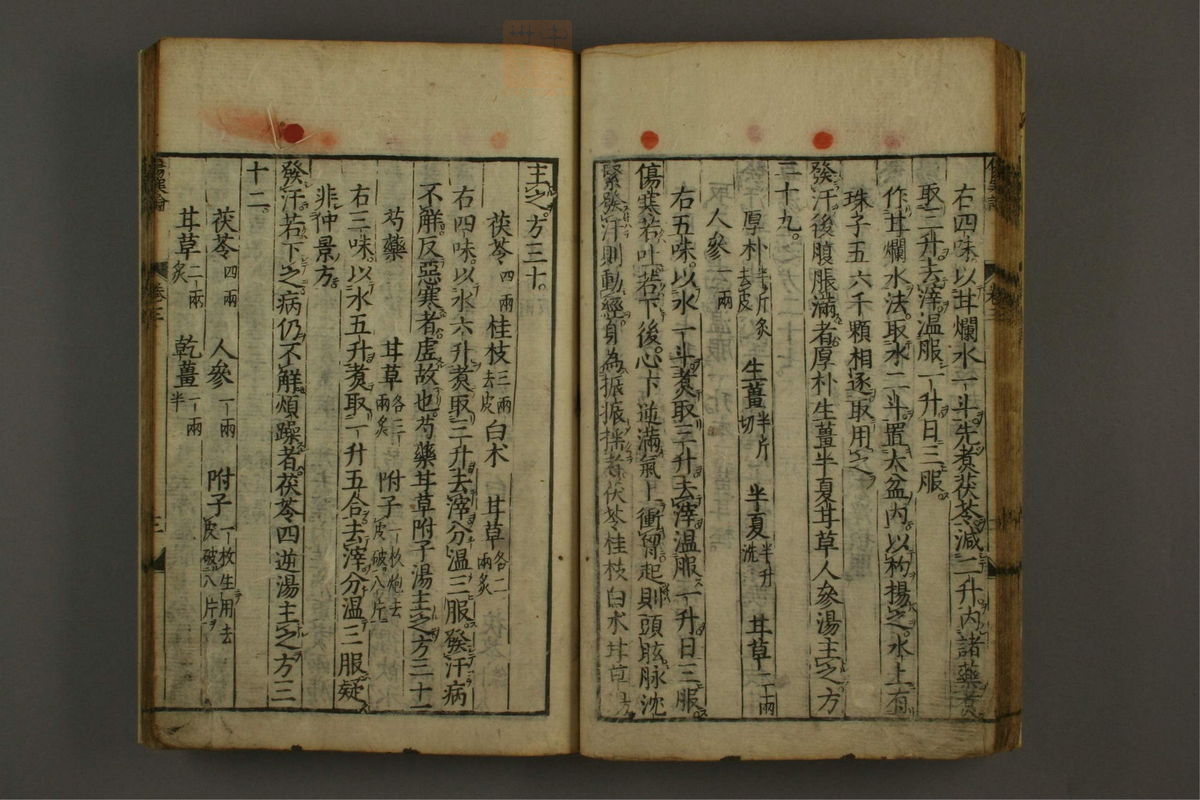 右四味以甘爛水一斗先煑茯苓減二升内諸藥煑
取三升去滓温服一升日三服
作甘爛水法取水二斗置大盆内以杓揚之水上有
珠子五六千顆相逐取用之
發汗後腹脹滿者厚朴生薑半夏甘草人參湯主之方
二十九
厚朴半斤炙去皮 生薑半斤切 半夏半升洗 甘草二兩
人參一兩
右五味以水一斗煑取三升去滓温服一升日三服
傷寒若吐若下後心下逆滿氣上衝胷起則頭眩脉沈
緊發汗則動經身為振振揺者茯苓桂枝白术甘草湯
主之方三十
茯苓四兩 桂枝三兩去皮 白术 甘草各二兩炙
右四味以水六升煑取三升去滓分温三服發汗病
不解反惡寒者虚故也芍藥甘草附子湯主之方三十一
芍藥 甘草各三兩炙 附子一枚炮去皮破八片
右三味以水五升煑取一升五合去滓分温三服疑
非仲景方
發汗若下之病仍不解煩躁者茯苓四逆湯主之方三
十二
茯苓四兩 人參一兩 附子一枚生用去皮破八片
甘草二兩炙 乾薑一兩半
卷三
三